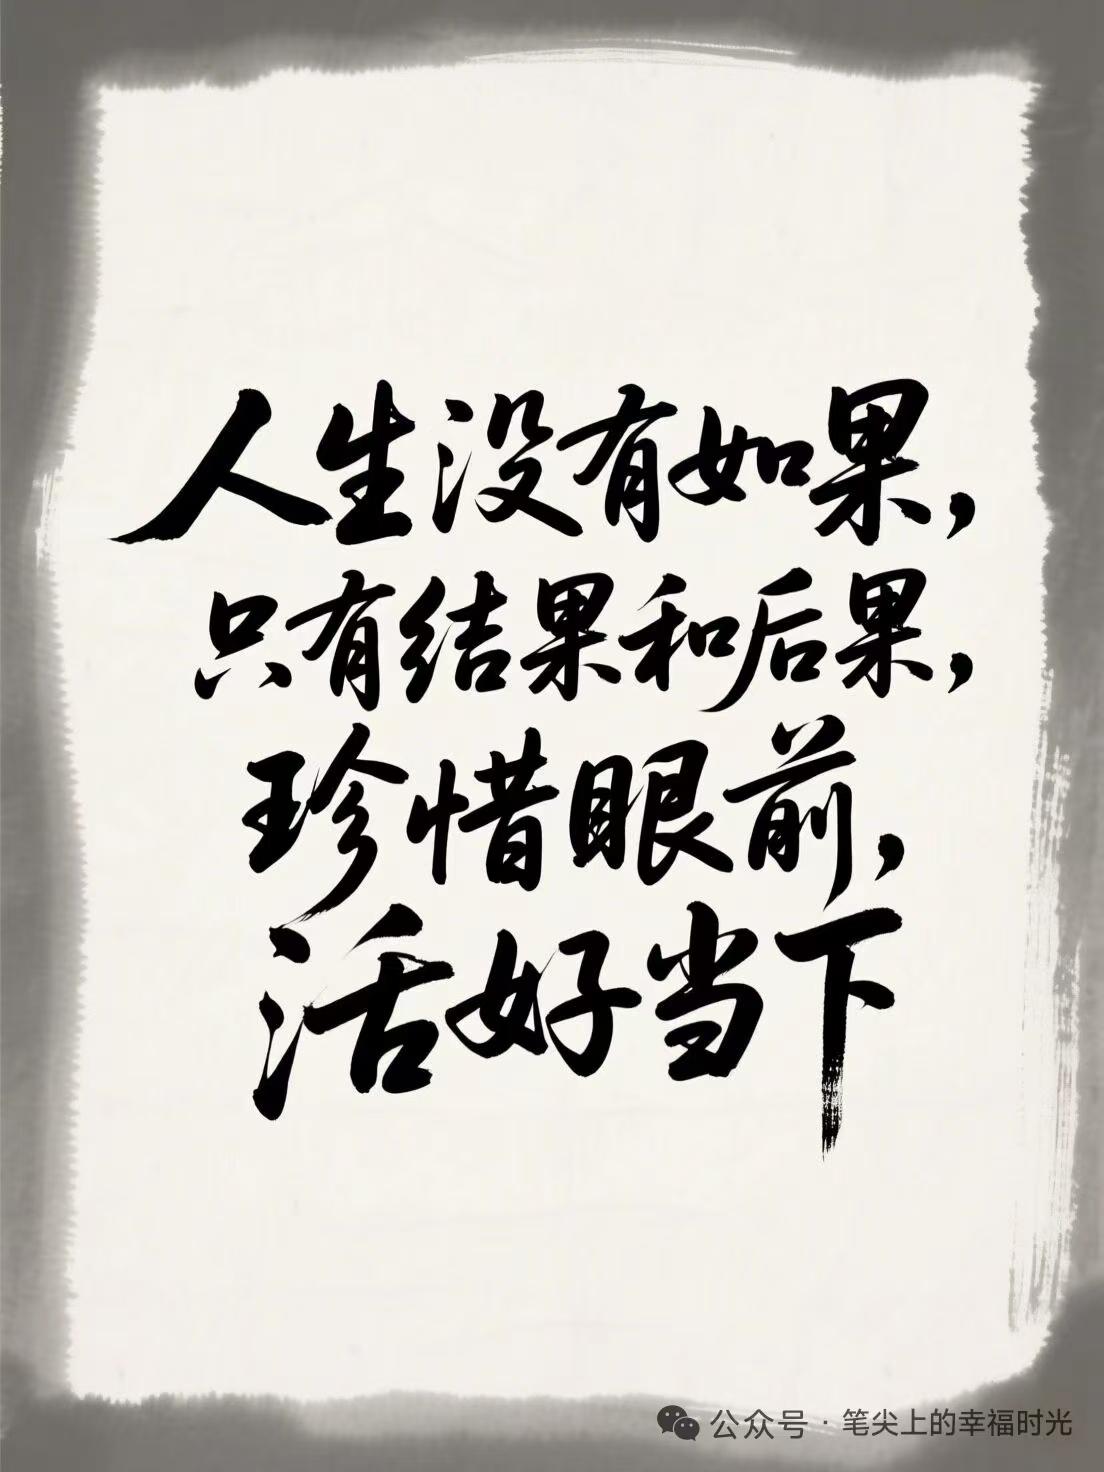 人生没有如果，
只有结果和后果，
珍惜眼前，
活好当下
公众号·笔尖上的幸福时光